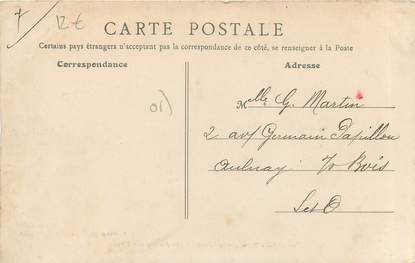 12 €
CARTE POSTALE
Certains pays étrangers n'acceptant pas la correspondance de ce côté, se renseigner à la Poste
Correspondance
Adresse
01)
Melle G. Martin
2 av Germain Papillon
Aulnay s/ Bois
S et O